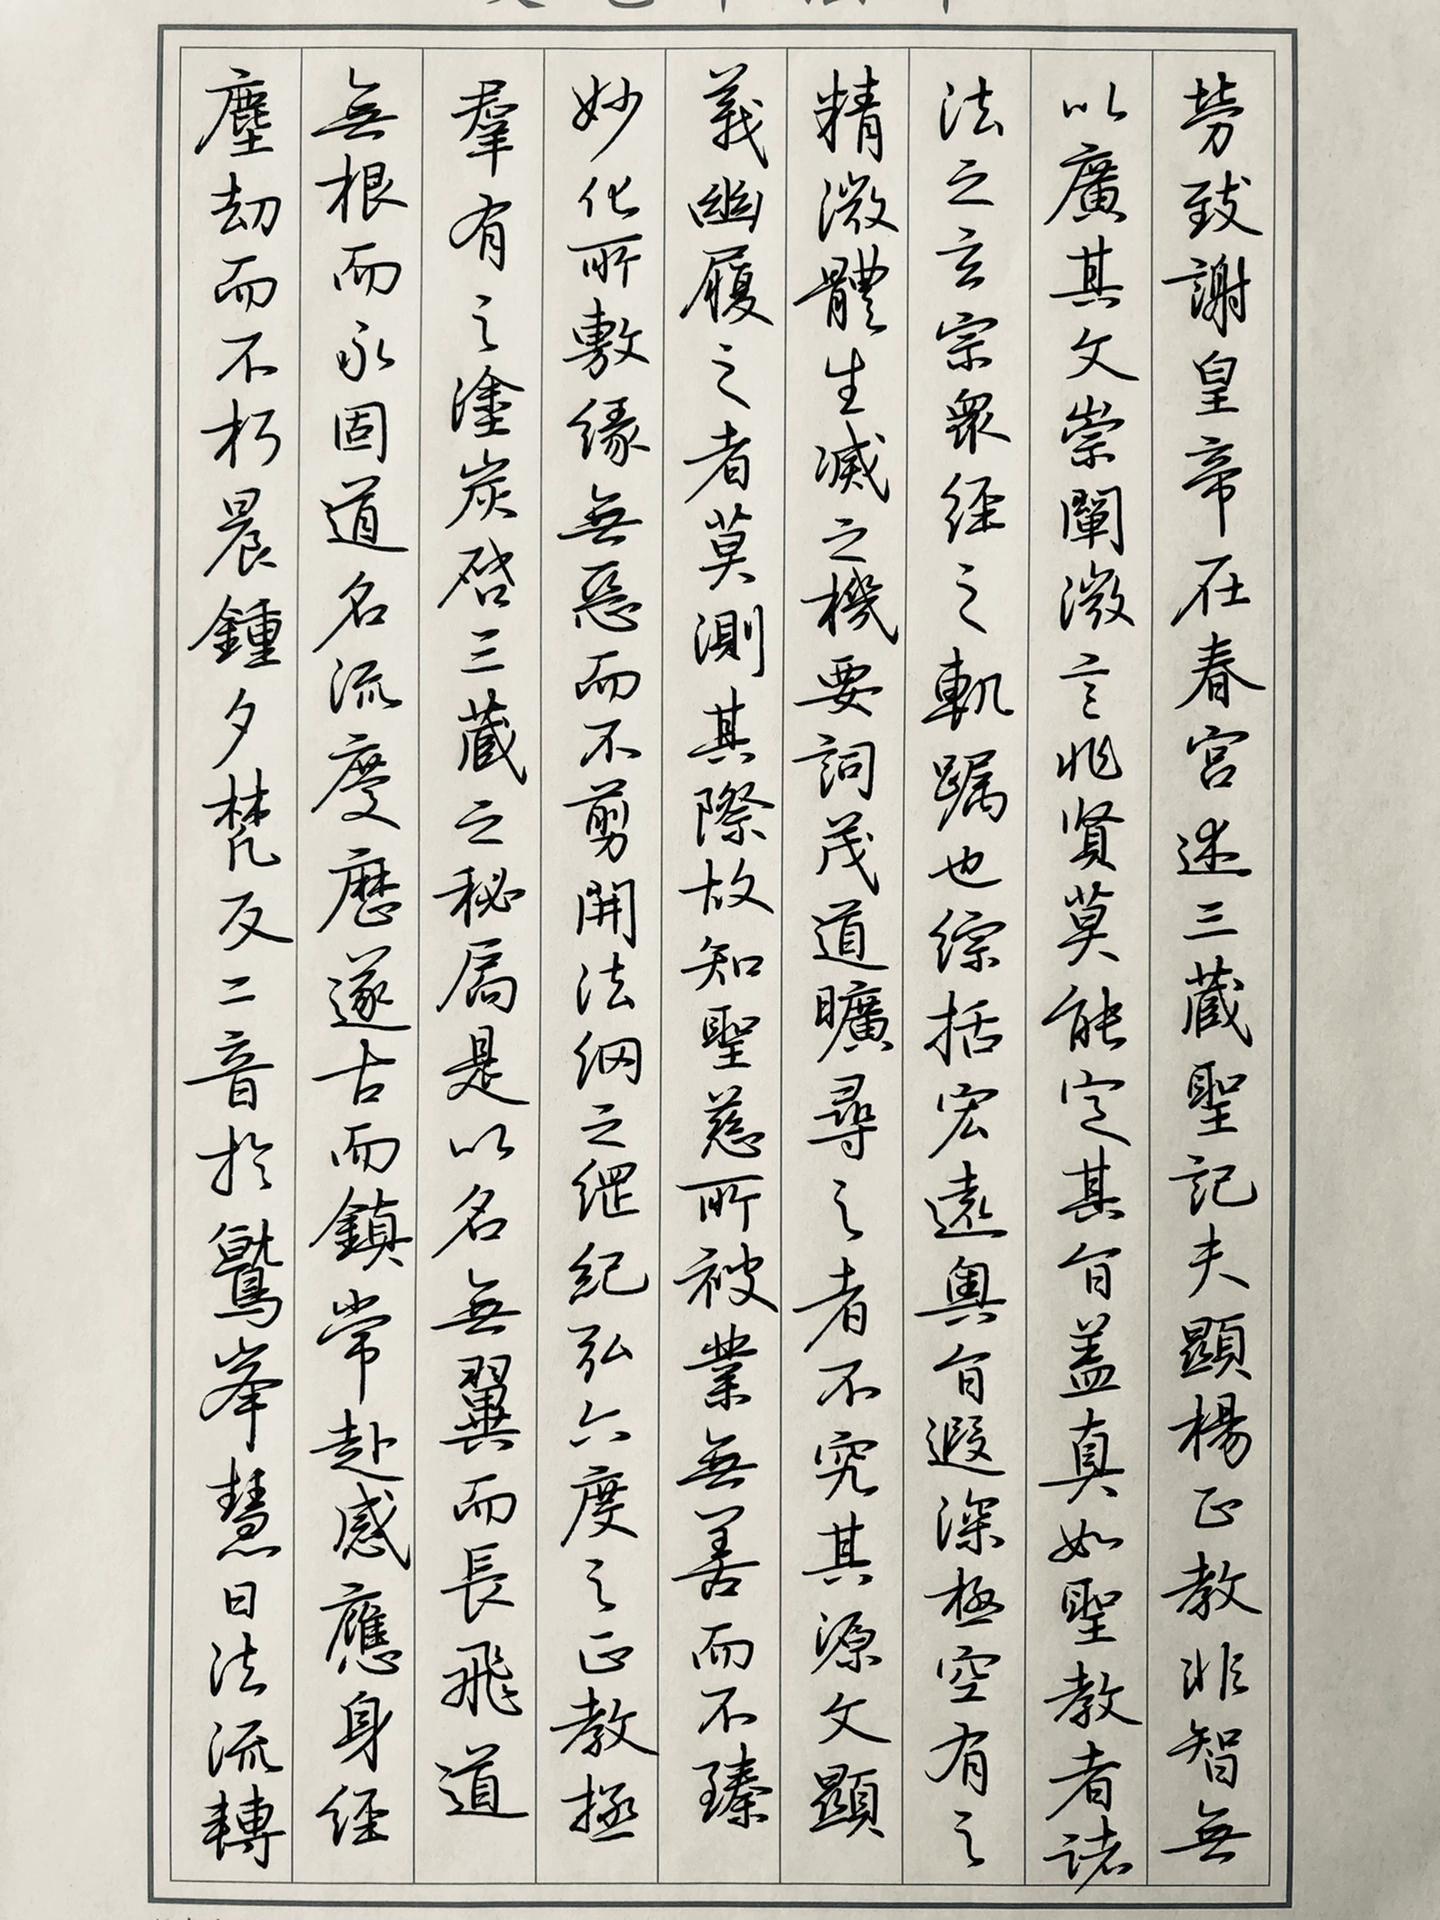 勞致謝皇帝在春宮述三藏聖記夫顯楊正教非智無
以廣其文崇闡微言非賢莫能定其旨蓋真如聖教者諸
法之玄宗衆經之軌躅也綜括宏遠奧旨遐深極空有之
精微體生滅之機要詞茂道曠尋之者不究其源文顯
義幽履之者莫測其際故知聖慈所被業無善而不臻
妙化所敷緣無惡而不剪開法網之綱紀弘六度之正教拯
羣有之塗炭啓三藏之秘扃是以名無翼而長飛道
無根而永固道名流慶歷遂古而鎮常赴感應身經
塵劫而不朽晨鍾夕梵交二音於鷲峯慧日法流轉